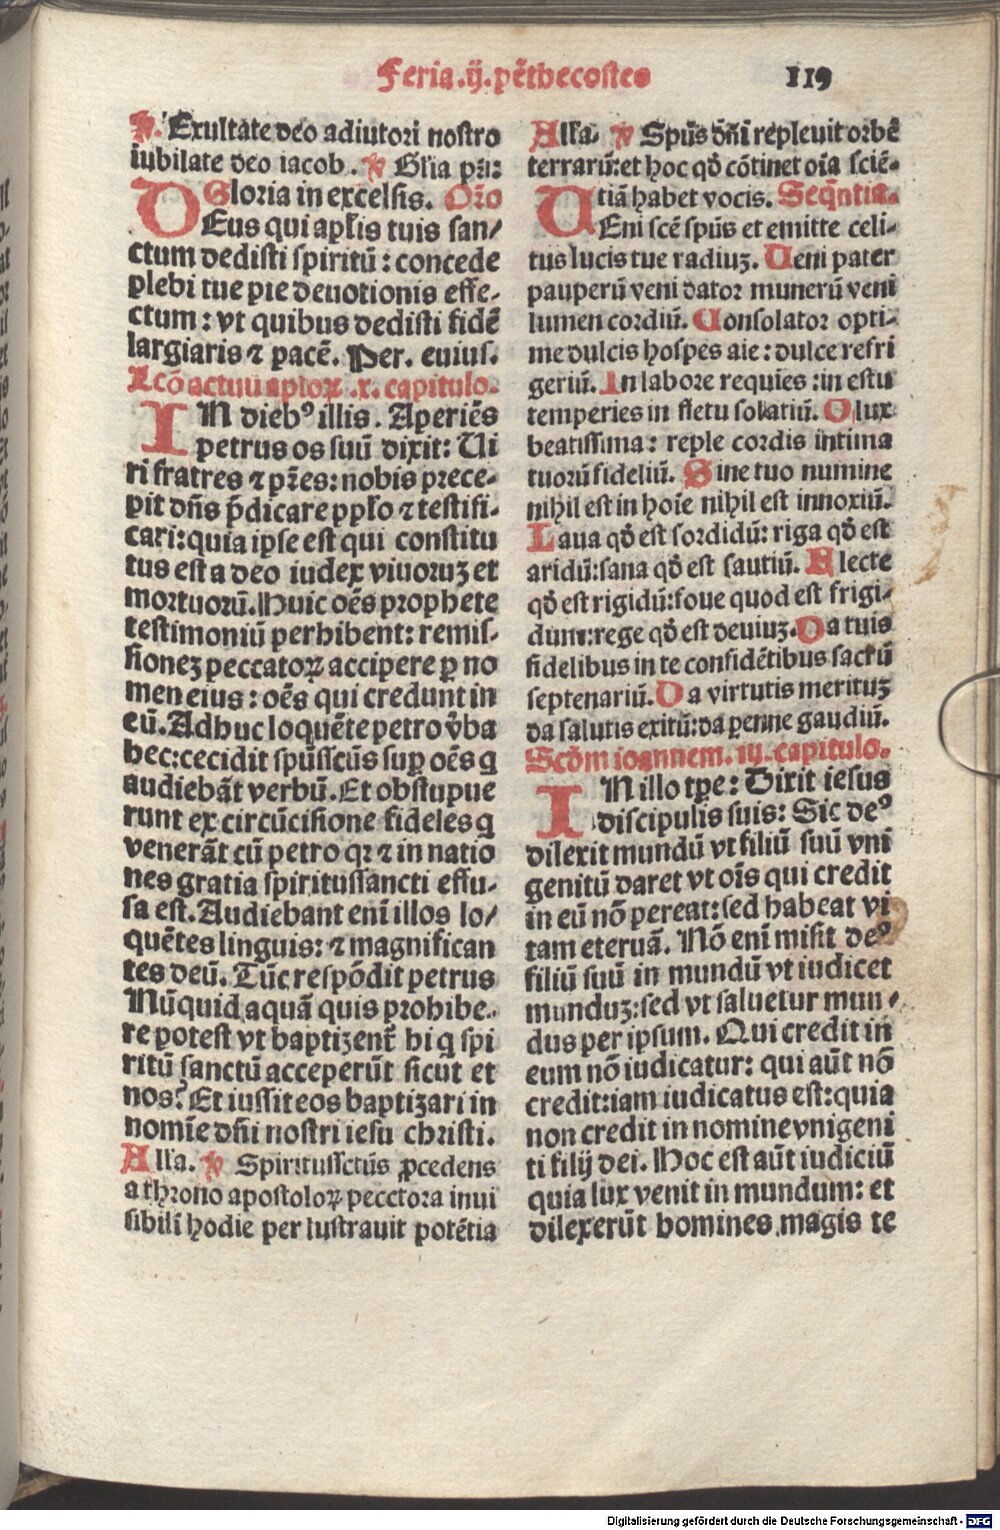 Feria .ij. pēthecostes 119
℣. Exultate deo adiutori nostro
iubilate deo iacob. ℣ Gl'ia pr̄i:
Gloria in excelsis. Or̄o
DEus qui apl'is tuis san/
ctum dedisti spiritū : concede
plebi tue pie deuotionis effe-
ctum : vt quibus dedisti fidē
largiaris ⁊ pacē. Per. euius.
Lcō actuū aploꝝ .x. capitulo.
IN diebꝰ illis. Aperiēs
petrus os suū dixit: Ui
ri fratres ⁊ pr̄es: nobis prece-
pit dn̄s p̄dicare ppl'o ⁊ testifi-
cari: quia ipse est qui constitu
tus est a deo iudex viuoruꝫ et
mortuorū. Huic oēs prophete
testimoniū perhibent: remis-
sioneꝫ peccatoꝝ accipere ꝑ no
men eius : oēs qui credunt in
eū. Adhuc loquēte petro v̄ba
hec: cecidit spūsscūs suꝑ oēs q
audiebāt verbū. Et obstupue
runt ex circūcisione fideles q
venerāt cū petro qꝛ ⁊ in natio
nes gratia spiritussancti effu-
sa est. Audiebant eni illos lo/
quētes linguis: ⁊ magnifican
tes deū. Tūc respōdit petrus
Nūquid aquā quis prohibe-
re potest vt baptizent̄ hi q spi
ritū sanctū acceperūt sicut et
nos? Et iussit eos baptizari in
nomīe dn̄i nostri iesu christi.
Alla. ℣ Spiritussctūs ꝓcedens
a throno apostoloꝝ pecctora inui
sibili hodie per lustrauit potētia
Alla. ℣ Spūs dn̄i repleuit orbē
terrarū: et hoc qd̄ cōtinet oīa sciē-
tiā habet vocis. Seqn̄tia.
UEni scē spūs et emitte celi-
tus lucis tue radiuꝫ. Ueni pater
pauperū veni dator munerū veni
lumen cordiū. Consolator opti-
me dulcis hospes aie : dulce refri
geriū. In labore requies : in estu
temperies in fletu solatiū. O lux
beatissima : reple cordis intima
tuorū fideliū. Sine tuo numine
nihil est in hoīe nihil est innoxiū.
Laua qd̄ est sordidū: riga qd̄ est
aridū: sana qd̄ est sautiū. Flecte
qd̄ est rigidū: foue quod est frigi-
dum: rege qd̄ est deuiuꝫ. Da tuis
fidelibus in te confidētibus sacrū
septenariū. Da virtutis merituꝫ
da salutis exitū: da perenne gaudiū.
Scd̄m ioannem. iij. capitulo.
IN illo tpe : Dixit iesus
discipulis suis: Sic deꝰ
dilexit mundū vt filiū suū vni
genitū daret vt oīs qui credit
in eū nō pereat: sed habeat vi
tam eteruā. Nō eni misit deꝰ
filiū suū in mundū vt iudicet
munduꝫ: sed vt saluetur mun-
dus per ipsum. Qui credit in
eum nō iudicatur: qui aūt nō
credit: iam iudicatus est: quia
non credit in nomine vnigeni
ti filij dei. Hoc est aūt iudiciū
quia lux venit in mundum: et
dilexerūt homines magis te
Digitalisierung gefördert durch die Deutsche Forschungsgemeinschaft - DFG